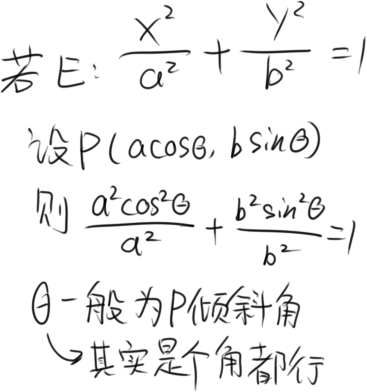 若E: x²/a² + y²/b² = 1
设P(acosθ, bsinθ)
则 a²cos²θ/a² + b²sin²θ/b² = 1
θ一般为P倾斜角
↳其实是个角都行